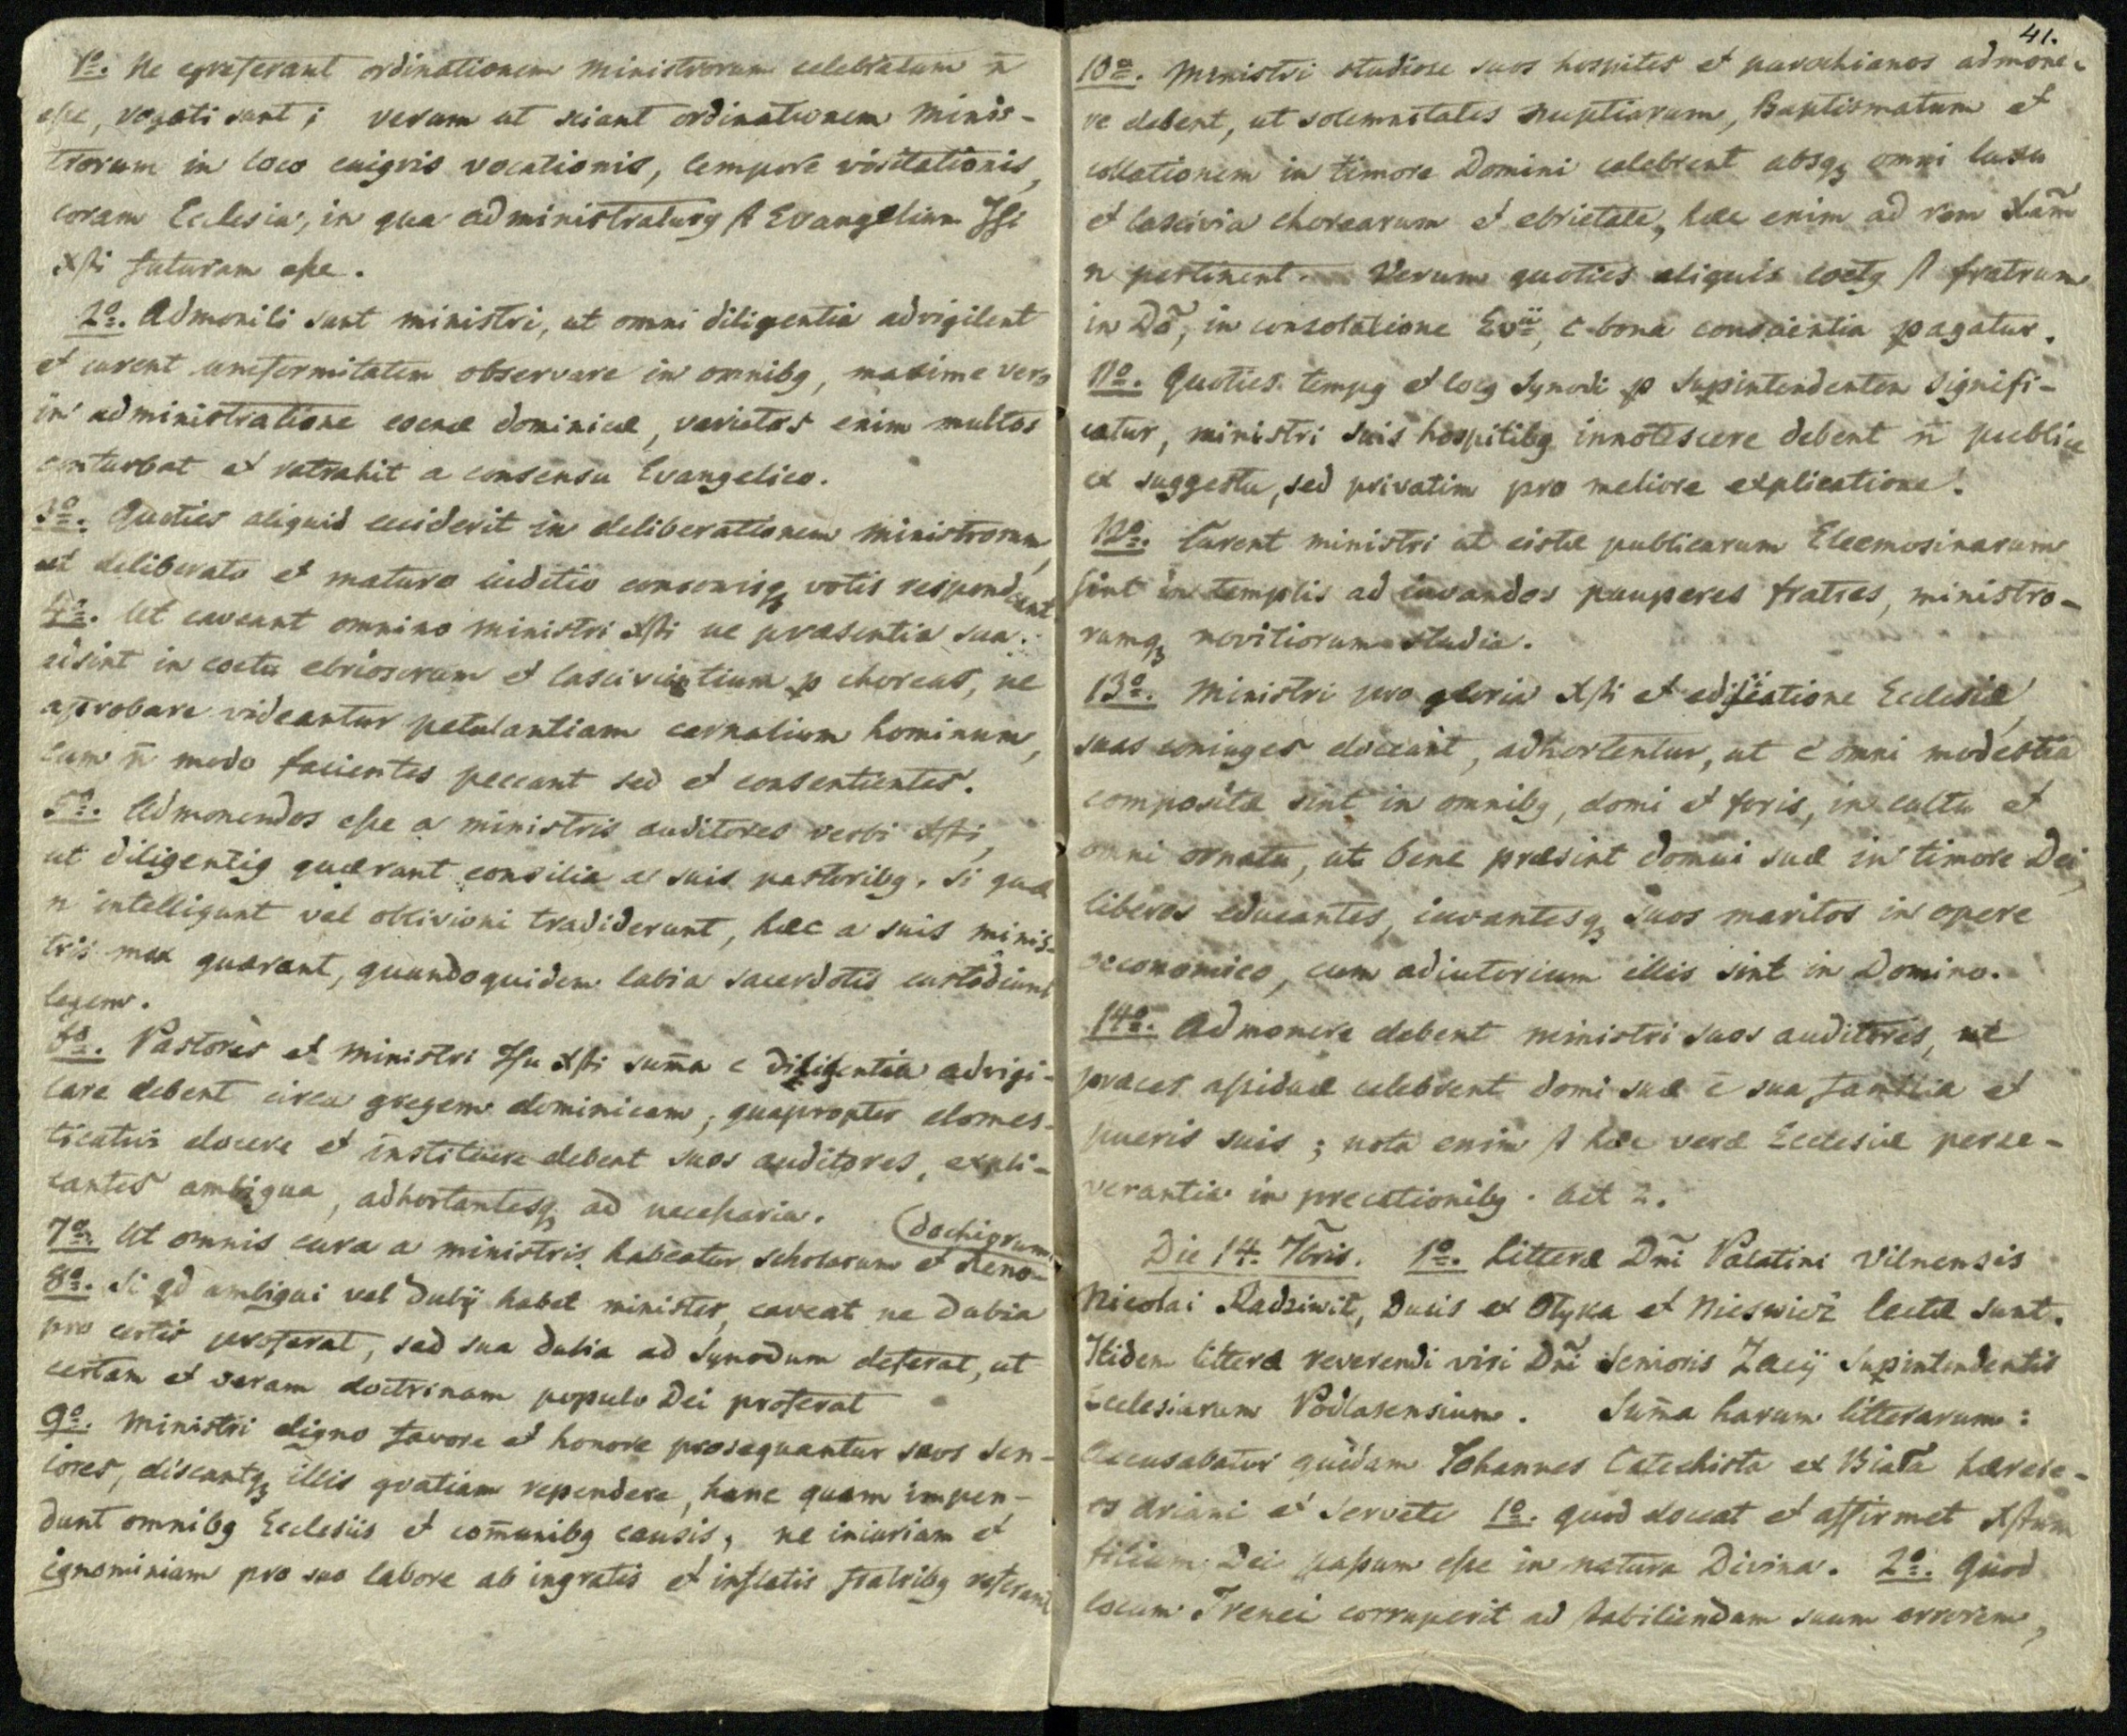 1o. Ne egreferant ordinationem Ministrorum celebratam n̄
esse, rogati sunt; verum ut sciant ordinationem Minis-
trorum in loco cuigvis vocationis, tempore visitationis,
coram Ecclesia, in qua administraturg st Evangelium Jesu
Xsti futuram esse.
2o. Admoniti sunt ministri, ut omni diligentia advigilent
et curent uniformitatem observare in omnibg, maxime vero
in administratione coenæ dominicæ, varietas enim multos
conturbat et retrahit a consensu Evangelico.
3o. Quoties aliquid ceciderit in deliberationem ministrorum,
ut deliberato et maturo iuditio consonisq votis respondeant.
4o. Ut caveant omnino ministri Xsti ne præsentia sua
adsint in coetu ebriosorum et lascivientium p choreas, ne
aprobare videantur petulantiam carnalium hominum,
cum n̄ modo facientes peccant sed et consentientes.
5o. Admonendos esse a ministris auditores verbi Xsti,
ut diligentig quærant consilia a suis pastoribg. Si quæ
n intelligunt vel oblivioni tradiderunt, hæc a suis minis-
tris mox quærant, quandoquidem labia sacerdotis custodiunt
legem.
6o. Pastores et Ministri Jesu Xsti sum̄a c diligentia advigi-
lare debent circa gregem dominicam, quapropter domes-
ticatim docere et instituere debent suos auditores, expli-
cantes ambigua, adhortantesq ad necessaria.
7o. Ut omnis cura a ministris habeatur scholarum et Xeno- (dochigrum.
8o. Si qd ambigui vel dubij habet minister, caveat ne dubia
pro certis proferat, sed sua dubia ad Synodum deferat, ut
certam et veram doctrinam populo Dei proferat
9o. Ministri digno favore et honore prosequantur suos Sen-
iores, discantq illis gratiam rependere, hanc quam impen-
dunt omnibg Ecclesiis et com̄unibg causis, ne iniuriam et
ignominiam pro suo labore ab ingratis et inflatis fratribg referant
41.
10o. Ministri studiose suos hospites et parochianos admone-
re debent, ut solemnitates nuptiarum, Baptismatum et
collationem in timore Domini celebrent absq omni luxu
et lascivia chorearum et ebrietate, hæc enim ad rem Xam̃
n pertinent. Verum quoties aliquis coetg st fratrum
in Dõ, in consolatione Evii, c bona conscientia pagatur.
11o. Quoties tempg et locg Synodi p Supintendentem signifi-
catur, ministri suis hospitibg innotescere debent n̄ publice
ex suggestu, sed privatim pro meliore explicatione.
12o. Curent ministri ut cistæ publicarum Eleemosinarum
sint in templis ad iuvandos pauperes fratres, ministro-
rumq novitiorum studia.
13o. Ministri pro gloria Xsti et edificatione Ecclesiæ
suas coniuges doceant, adhortentur, ut c omni modestia
compositæ sint in omnibg, domi et foris, in cultu et
omni ornatu, ut bene præsint domui suæ in timore Dei,
liberos educantes, iuvantesq suos maritos in opere
oeconomico, cum adiutorium illis sint in Domino.
14o. Admonere debent ministri suos auditores, ut
præces assiduæ celebrent domi suæ c̄ sua familia et
pueris suis; nota enim st hæc veræ Ecclesiæ perse-
verantia in precationibg. Act 2.
Die 14. 7bris. 1o. Litteræ Dnĩ Palatini Vilnensis
Nicolai Radziwił, Ducis ex Ołyka et Nieswież lectæ sunt.
Itidem litteræ reverendi viri Dnĩ Senioris Zacij Supintendentis
Ecclesiarum Podlasensium. Sum̄a harum litterarum:
Accusabatur quidam Iohannes Catechista ex Biała hærese-
os Ariani et Serveti 1o. quod doceat et affirmet Xstum
filium Dei passum esse in natura Divina. 2o. Quod
locum Irenei corruperit ad stabiliendam suum errorem,